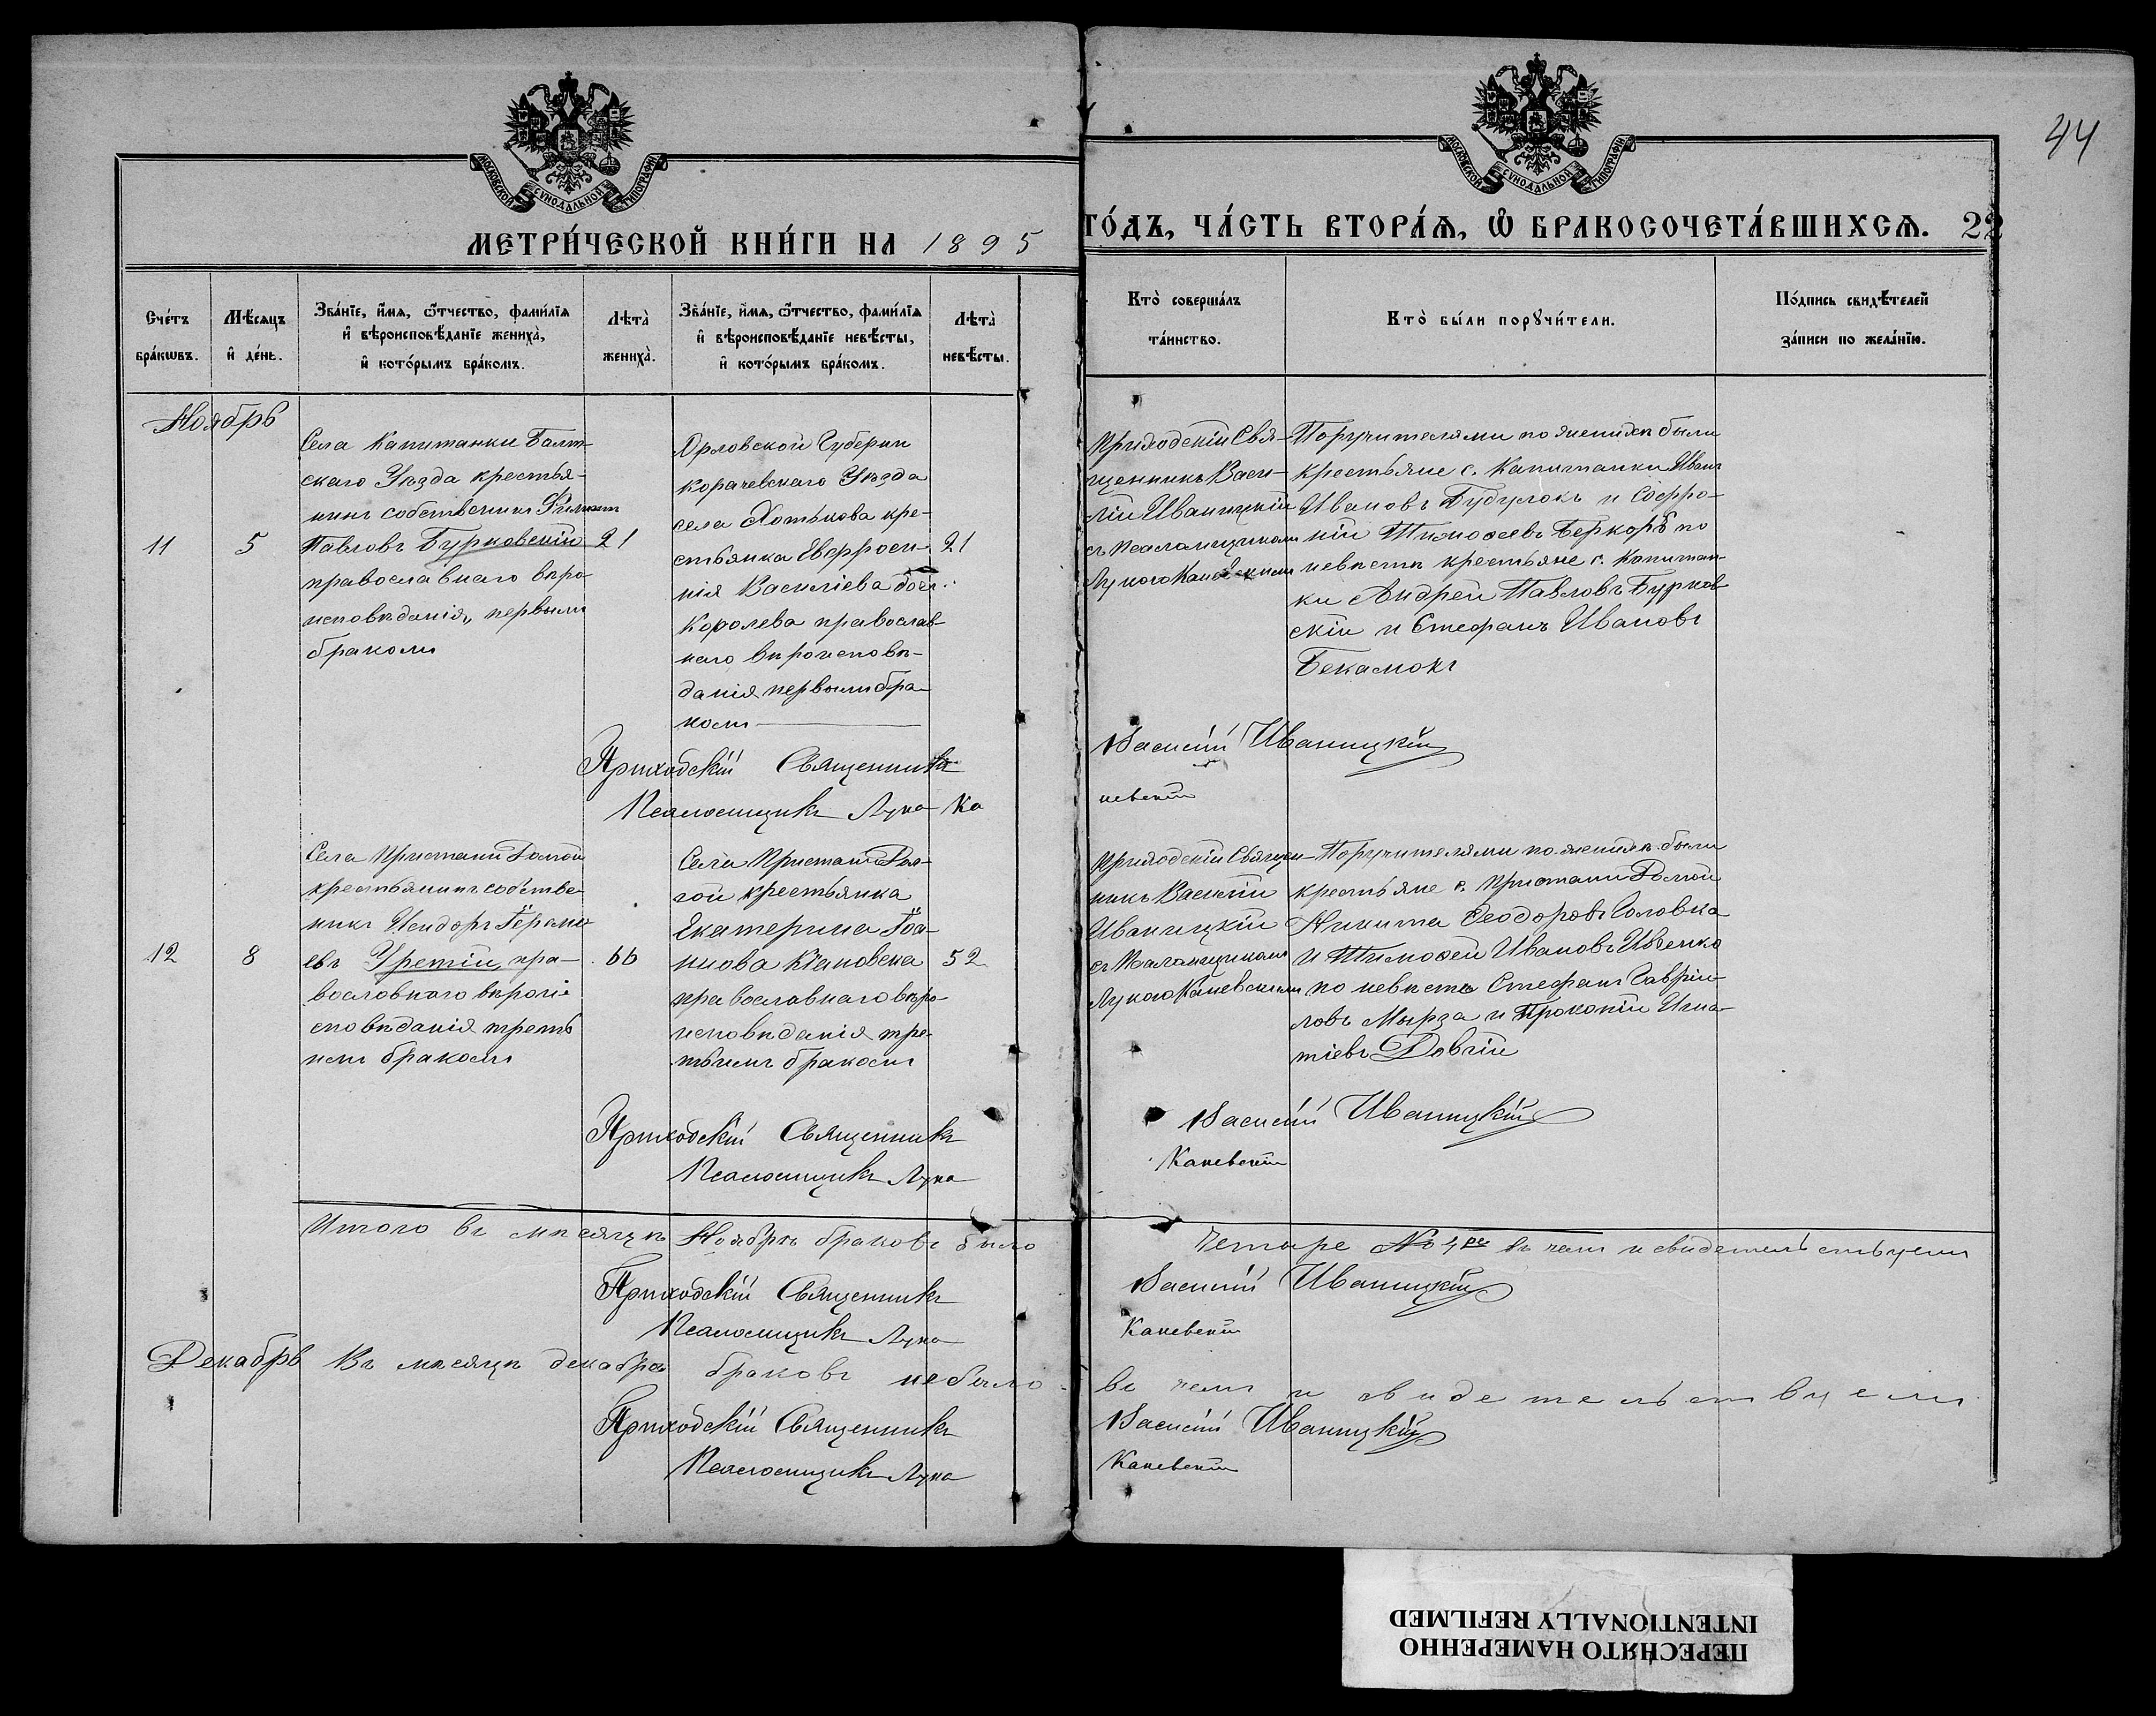 44
МОСКОВСКОЙ СѴНОДАЛЬНОЙ ТИПОГРАФІИ
МОСКОВСКОЙ СѴНОДАЛЬНОЙ ТИПОГРАФІИ
МЕТРИ́ЧЕСКОЙ КНИ́ГИ НА 1895
ГО́ДЪ, ЧА́СТЬ ВТОРА́Ѧ, Ѽ БРАКОСОЧЕТА́ВШИХСѦ. 22
Сче́тъ
бра́кѡвъ.
Мѣ́сѧцъ
и҆ де́нь.
Зва́нїе, и҆́мѧ, ѻ҆́тчество, фами́лїѧ
и҆ вѣроисповѣ́данїе жениха̀,
и҆ кото́рымъ бра́комъ.
Лѣта̀
жениха̀.
Зва́нїе, и҆́мѧ, ѻ҆́тчество, фами́лїѧ
и҆ вѣроисповѣ́данїе невѣ́сты,
и҆ кото́рымъ бра́комъ.
Лѣта̀
невѣ́сты.
Кто̀ соверша́лъ
та́инство.
Кто̀ бы́ли порꙋчи́тели.
По́дпись свидѣ́телей
за́писи по жела́нїю.
Ноябрь
11
5
Села Капитанки Балт-
скаго Уѣзда крестья-
нинъ собственникъ Филиппъ
Павловъ Бурковскій
православнаго вѣро-
исповѣданія, первымъ
бракомъ
21
Орловской Губерніи
Корачевскаго Уѣзда
села Хотькова кре-
стьянка Евфроси-
нія Василіева доч.
Королева православ-
наго вѣроисповѣ-
данія первымъ бра-
комъ
21
Приходскій Свя-
щенникъ Васи-
лій Иваницкій
съ Псаломщикомъ
Лукою Каневскимъ
Поручителями по женихѣ были
крестьяне с. Капитанки Иванъ
Ивановъ Будулокъ и Софро-
ній Тимофеевъ Беркоръ по
невѣстѣ крестьяне с. Капитан-
ки Андрей Павловъ Бурков-
скій и Стефанъ Ивановъ
Бекамокъ
Приходскій Священникъ Василій Иваницкій
Псаломщикъ Лука Каневскій
12
8
Села Пристани Долгой
крестьянинъ собстве-
никъ
евъ Уретій, пра-
вославнаго вѣроис-
повѣданія треть
имъ бракомъ
66
Села Пристани Дол-
гой крестьянка
Екатерина Іоа-
ннова Клановска
православнаго вѣро-
исповѣданія тре-
тьимъ бракомъ
52
Приходскій Священ-
никъ Василій
Иваницкій
съ Псаломщикомъ
Лукою Каневскимъ
Поручителями по женихѣ были
крестьяне с. Пристани Долгой
Никита Феодоровъ Головка
и Тимофей Ивановъ Ивченко
по невѣстѣ Стефанъ Гавріи-
ловъ Мырза и Прокопій Игна-
тіевъ Довгій
Приходскій Священникъ Василій Иваницкій
Псаломщикъ Лука Каневскій
Итого въ мѣсяцѣ Ноябрѣ браковъ было четыре № 4 въ чемъ и свидетельствуемъ
Приходскій Священникъ Василій Иваницкій
Псаломщикъ Лука Каневскій
Декабрь Въ мѣсяцѣ декабрѣ браковъ небыло въ чемъ и свидетельствуемъ
Приходскій Священникъ Василій Иваницкій
Псаломщикъ Лука Каневскій
ПЕРЕСНЯТО НАМЕРЕННО
INTENTIONALLY REFILMED